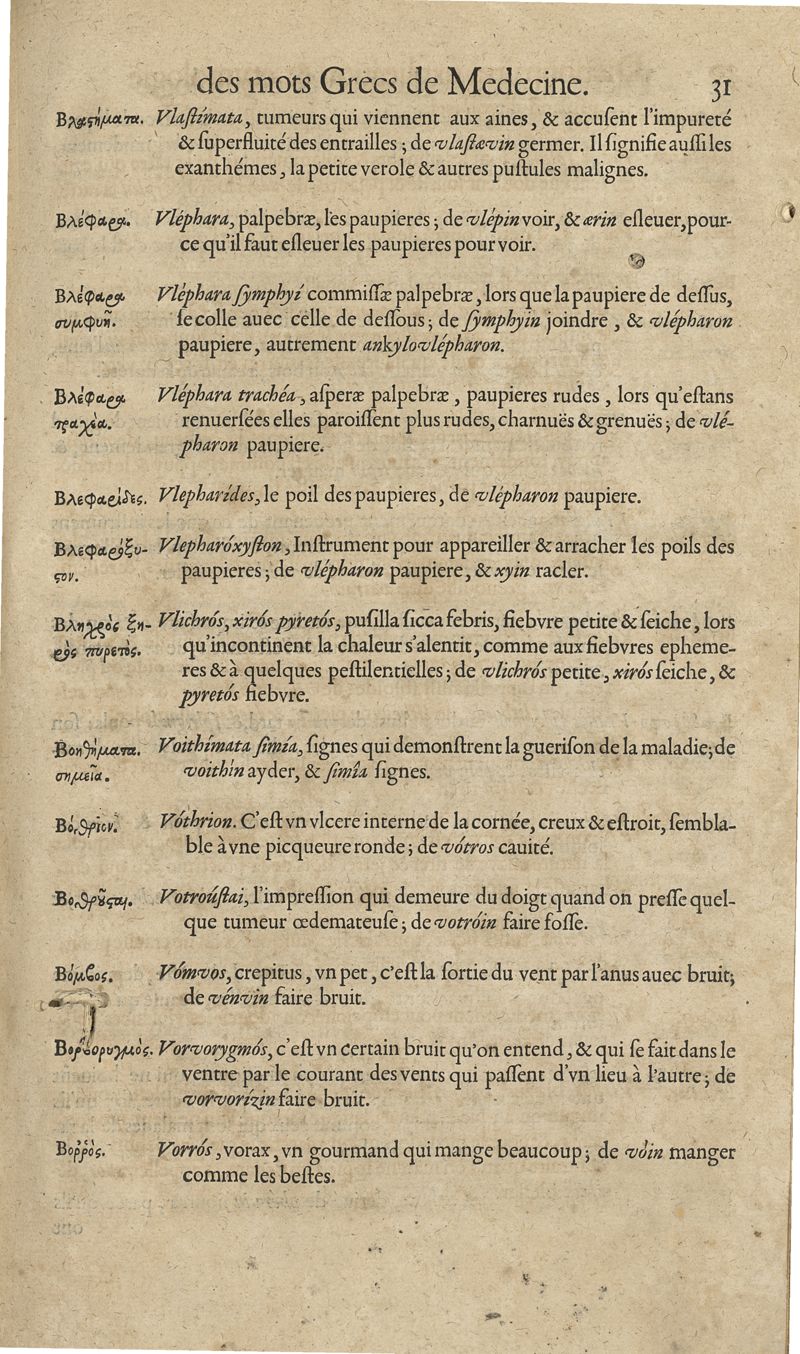 des mots Grecs de Medecine. 31
Βλαστήματα. Vlaſtímata, tumeurs qui viennent aux aines, & accuſent l'impureté
& ſuperfluité des entrailles ; de vlaſtævin germer. Il ſignifie auſſi les
exanthémes, la petite verole & autres puſtules malignes.
Βλέφαρα. Vléphara, palpebræ, les paupieres ; de vlépin voir, & ærin eſleuer, pour-
ce qu'il faut eſleuer les paupieres pour voir.
Βλέφαρα Vléphara ſymphyí commiſſæ palpebræ, lors que la paupiere de deſſus,
συμφυῆ. ſe colle auec celle de deſſous ; de ſymphyin joindre , & vlépharon
paupiere, autrement ankylovlépharon.
Βλέφαρα Vléphara trachéa, aſperæ palpebræ , paupieres rudes , lors qu'eſtans
τραχέα. renuerſées elles paroiſſent plus rudes, charnuës & grenuës ; de vlé-
pharon paupiere.
Βλεφαρίδες. Vlepharídes, le poil des paupieres, de vlépharon paupiere.
Βλεφαρόξυ- Vlepharóxyſton, Inſtrument pour appareiller & arracher les poils des
στον. paupieres ; de vlépharon paupiere, & xyin racler.
Βληχρὸς ξη- Vlichrós, xirós pyretós, puſilla ſicca febris, fiebvre petite & ſeiche, lors
ρὸς πυρετὸς. qu'incontinent la chaleur s'alentit, comme aux fiebvres epheme-
res & à quelques peſtilentielles ; de vlichrós petite, xirós ſeiche, &
pyretós fiebvre.
Βοηθήματα. Voithímata ſimía, ſignes qui demonſtrent la gueriſon de la maladie; de
σημεῖα. voithin ayder, & ſimîa ſignes.
Βόθριον. Vóthrion. C'eſt vn vlcere interne de la cornée, creux & eſtroit, ſembla-
ble à vne picqueure ronde ; de vótros cauité.
Βοθροῦσται. Votroúſtai, l'impreſſion qui demeure du doigt quand on preſſe quel-
que tumeur œdemateuſe ; de votróin faire foſſe.
Βόμβος. Vómvos, crepitus, vn pet, c'eſt la ſortie du vent par l'anus auec bruit;
de vénvin faire bruit.
Βορβορυγμὸς. Vorvorygmós, c'eſt vn certain bruit qu'on entend, & qui ſe fait dans le
ventre par le courant des vents qui paſſent d'vn lieu à l'autre ; de
vorvorízin faire bruit.
Βορρὸς. Vorrós, vorax, vn gourmand qui mange beaucoup ; de vòin manger
comme les beſtes.